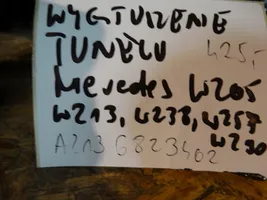 WYGŁUSZENIE
TUNELU 425,-
Mercedes W205
W213, W238, W257
W290
A213 6823402